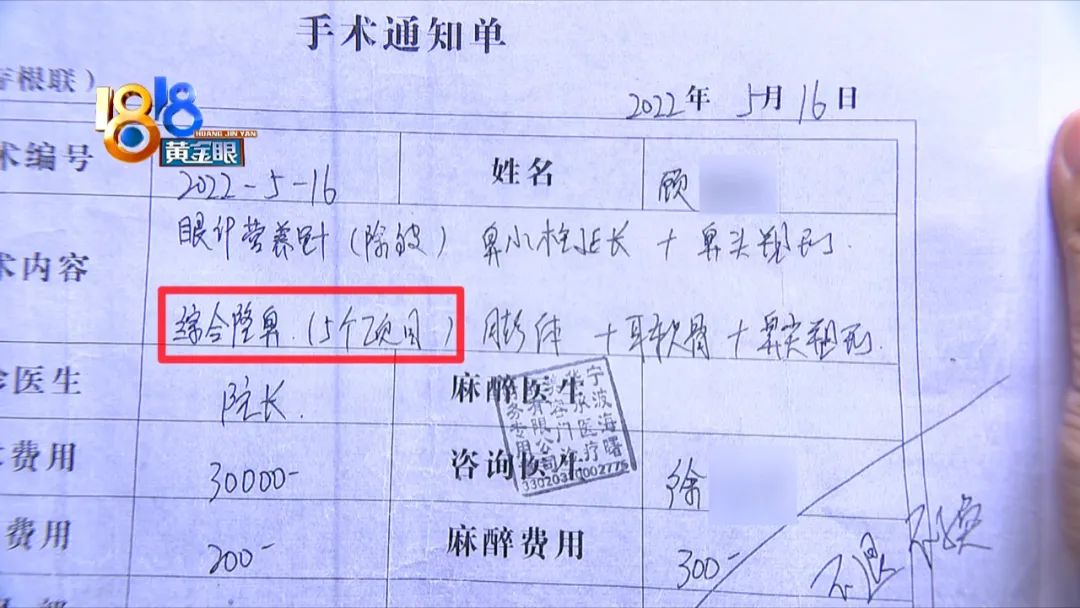 手术通知单
存根联）
1818
HUANG JIN YAN
黄金眼
2022年 5月16日
术编号 2022-5-16 姓名 顾
术内容 眼纤营养针（除皱） 鼻小柱延长 + 鼻头塑形.
综合隆鼻.（5个项目） 膨体 + 耳软骨 + 鼻尖塑形.
医生 院长. 麻醉医生
费用 30000- 咨询医生 徐
费用 200- 麻醉费用 300-
不退 不换
宁波海曙
33020310002775